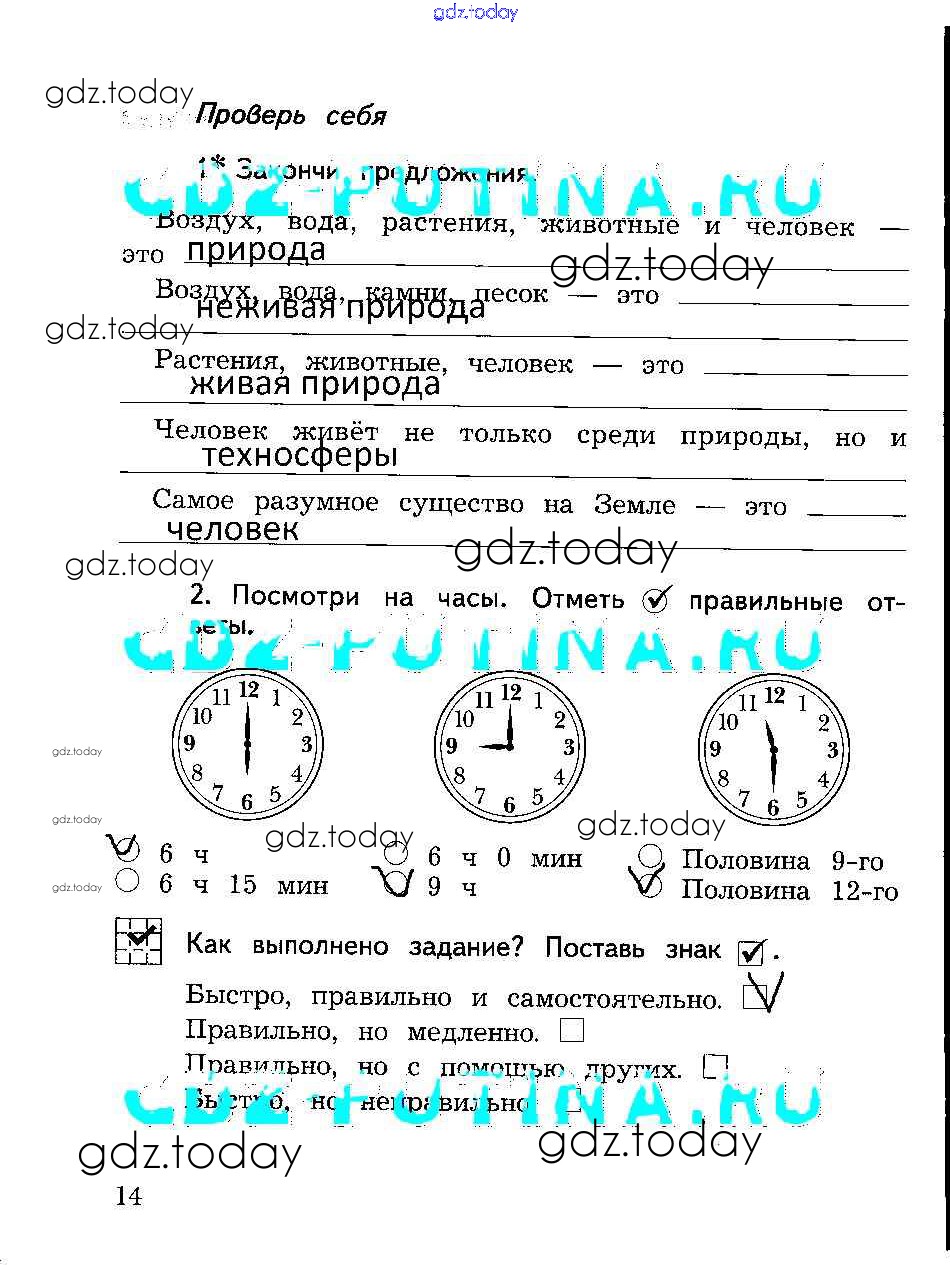 gdz.today
gdz.today
Проверь себя
1* Закончи предложения.
GDZ-PUTINA.RU
Воздух, вода, растения, животные и человек —
это природа
gdz.today
Воздух, вода, камни, песок — это
неживая природа
gdz.today
Растения, животные, человек — это
живая природа
Человек живёт не только среди природы, но и
техносферы
Самое разумное существо на Земле — это
человек
gdz.today
gdz.today
2. Посмотри на часы. Отметь правильные от-
веты.
GDZ-PUTINA.RU
11 12 1 10 2 9 3 8 4 7 6 5
11 12 1 10 2 9 3 8 4 7 6 5
11 12 1 10 2 9 3 8 4 7 6 5
gdz.today
gdz.today
gdz.today
gdz.today
6 ч 6 ч 0 мин Половина 9-го
gdz.today
6 ч 15 мин 9 ч Половина 12-го
Как выполнено задание? Поставь знак .
Быстро, правильно и самостоятельно.
Правильно, но медленно.
Правильно, но с помощью других.
GDZ-PUTINA.RU
Быстро, но неправильно.
gdz.today
gdz.today
14